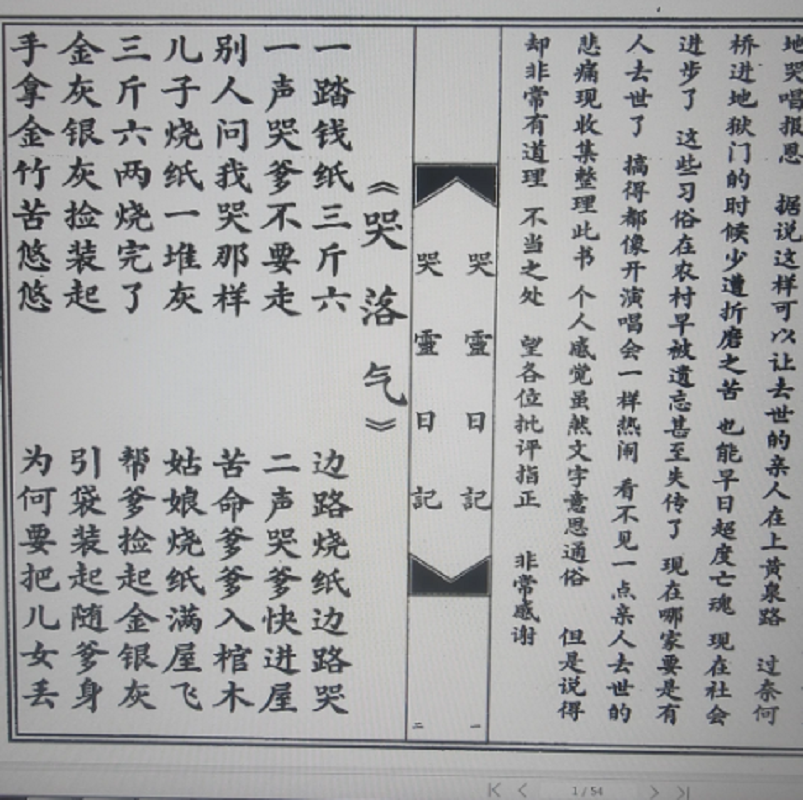 地哭唱报恩 据说这样可以让去世的亲人在上黄泉路 过奈何
桥进地狱门的时候少遭折磨之苦 也能早日超度亡魂 现在社会
进步了 这些习俗在农村早被遗忘甚至失传了 现在哪家要是有
人去世了 搞得都像开演唱会一样热闹 看不见一点亲人去世的
悲痛现收集整理此书 个人感觉虽然文字意恩通俗 但是说得
却非常有道理 不当之处 望各位批评指正 非常感谢
哭靈日記 一
哭靈日記 二
《哭落气》
一踏钱纸三斤六 边路烧纸边路哭
一声哭爹不要走 二声哭爹快进屋
别人问我哭那样 苦命爹爹入棺木
儿子烧纸一堆灰 姑娘烧纸满屋飞
三斤六两烧完了 帮爹捡起金银灰
金灰银灰捡装起 引袋装起随爹身
手拿金竹苦悠悠 为何要把儿女丢
1/54